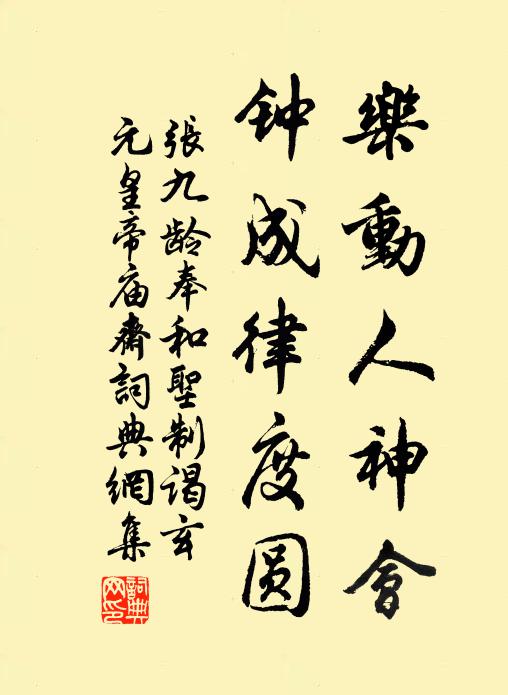 樂動人神會
钟成律度圆
張九龄奉和聖制谒玄
元皇帝庙齋詞典網集